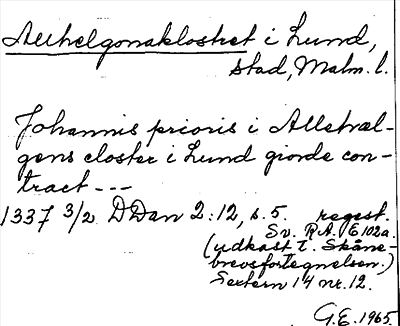 Allhelgonaklostret i Lund,
stad, Malm. l.
Johannis prioris i Alletræl-
gens closter i Lund giorde con-
tract ---
1337 3/2 DDan 2:12, s. 5. regest.
Sv. R.A. E 102a.
(udkast t. Skåne-
brevsfortegnelsen.)
Sextern 14 nr. 12.
G.E. 1965.